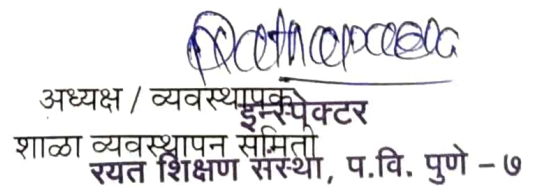 अध्यक्ष / व्यवस्थापक
इन्स्पेक्टर
शाळा व्यवस्थापन समिती
रयत शिक्षण संस्था, प.वि. पुणे – ७